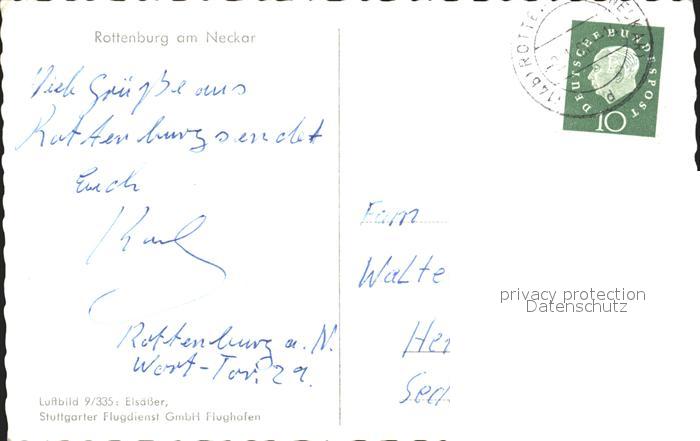 Rottenburg am Neckar
Viele Grüße aus
Rottenburg sendet
Euch
Karl
Rottenburg a. N.
Luftbild 9/335: Elsäßer,
Stuttgarter Flugdienst GmbH Flughafen
DEUTSCHE BUNDESPOST
10
(14b) ROTTE
Fam
Walte
privacy protection
Datenschutz